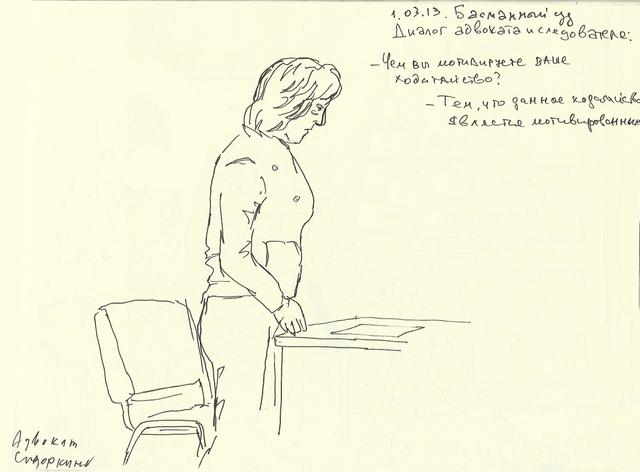 1.03.13. Басманный суд
Диалог адвоката и следователя:
- Чем вы мотивируете ваше
ходатайство?
- Тем, что данное ходатайство
является мотивированным
Адвокат
Сидоркина